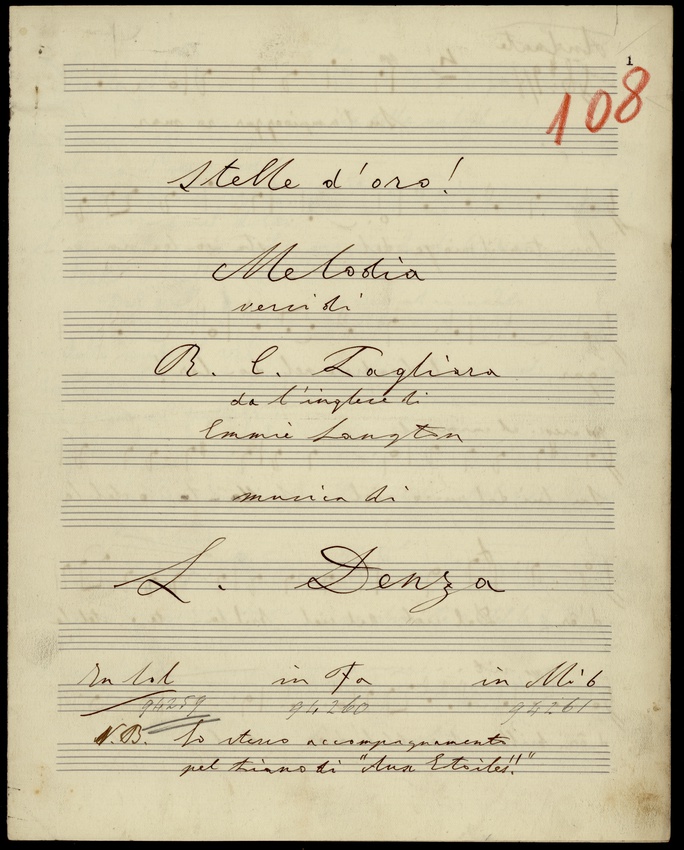 1
108
Stelle d'oro!
Melodia
versi di
R. C. Tagliara
da l'inglese di
Emmie Langton
musica di
L. Denza
In Sol in Fa in Mi b
94259 94260 94261
N.B. Lo stesso accompagnamento
pel piano di "Aux Etoiles!!"